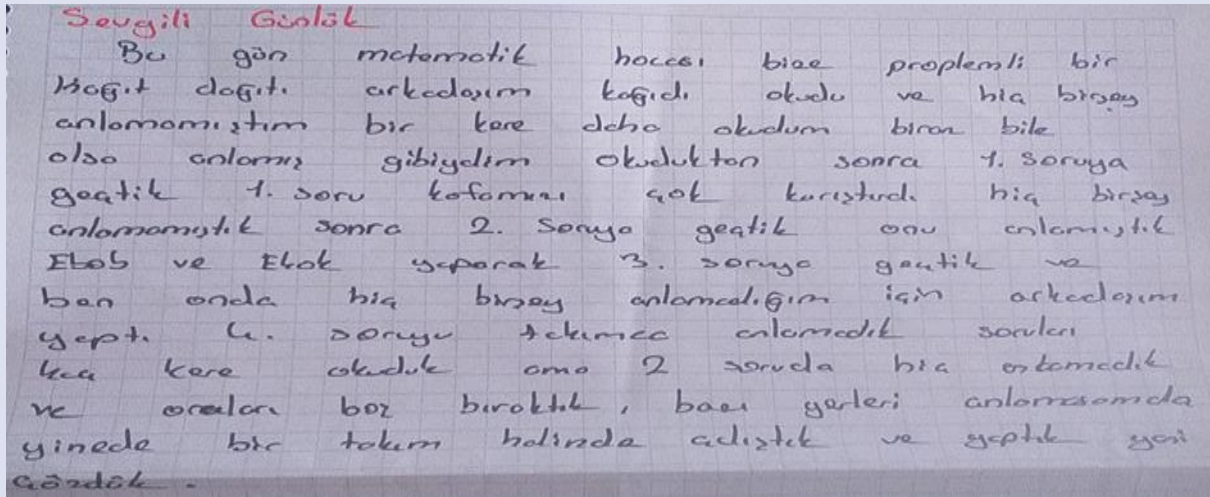 Sevgili Günlük
Bu gün matematik hocası bize proplemli bir
Kağıt dağıtı arkadaşım kağıdı okudu ve hiç birşey
anlamamıştım bir kere daha okudum biran bile
olsa anlamış gibiydim okuduktan sonra 1. soruya
geçtik 1. soru kafamızı çok karıştırdı hiç birşey
anlamamıştık sonra 2. Soruya geçtik onu anlamıştık
Ebob ve Ekok yaparak 3. soruya geçtik ve
ben onda hiç birşey anlamadığım için arkadaşım
yaptı 4. soruyu takımca anlamadık soruları
kaç kere okuduk ama 2 soruda hiç anlamadık
ve oraları boz bıraktık, bazı yerleri anlamasamda
yinede bir takım halinde çalıştık ve yaptık yani
Çözdük.